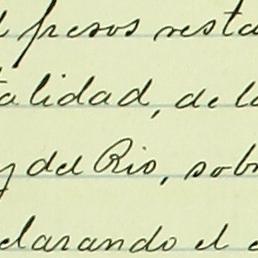 presos resta
alidad, de l
y del Rio, sob
larando el